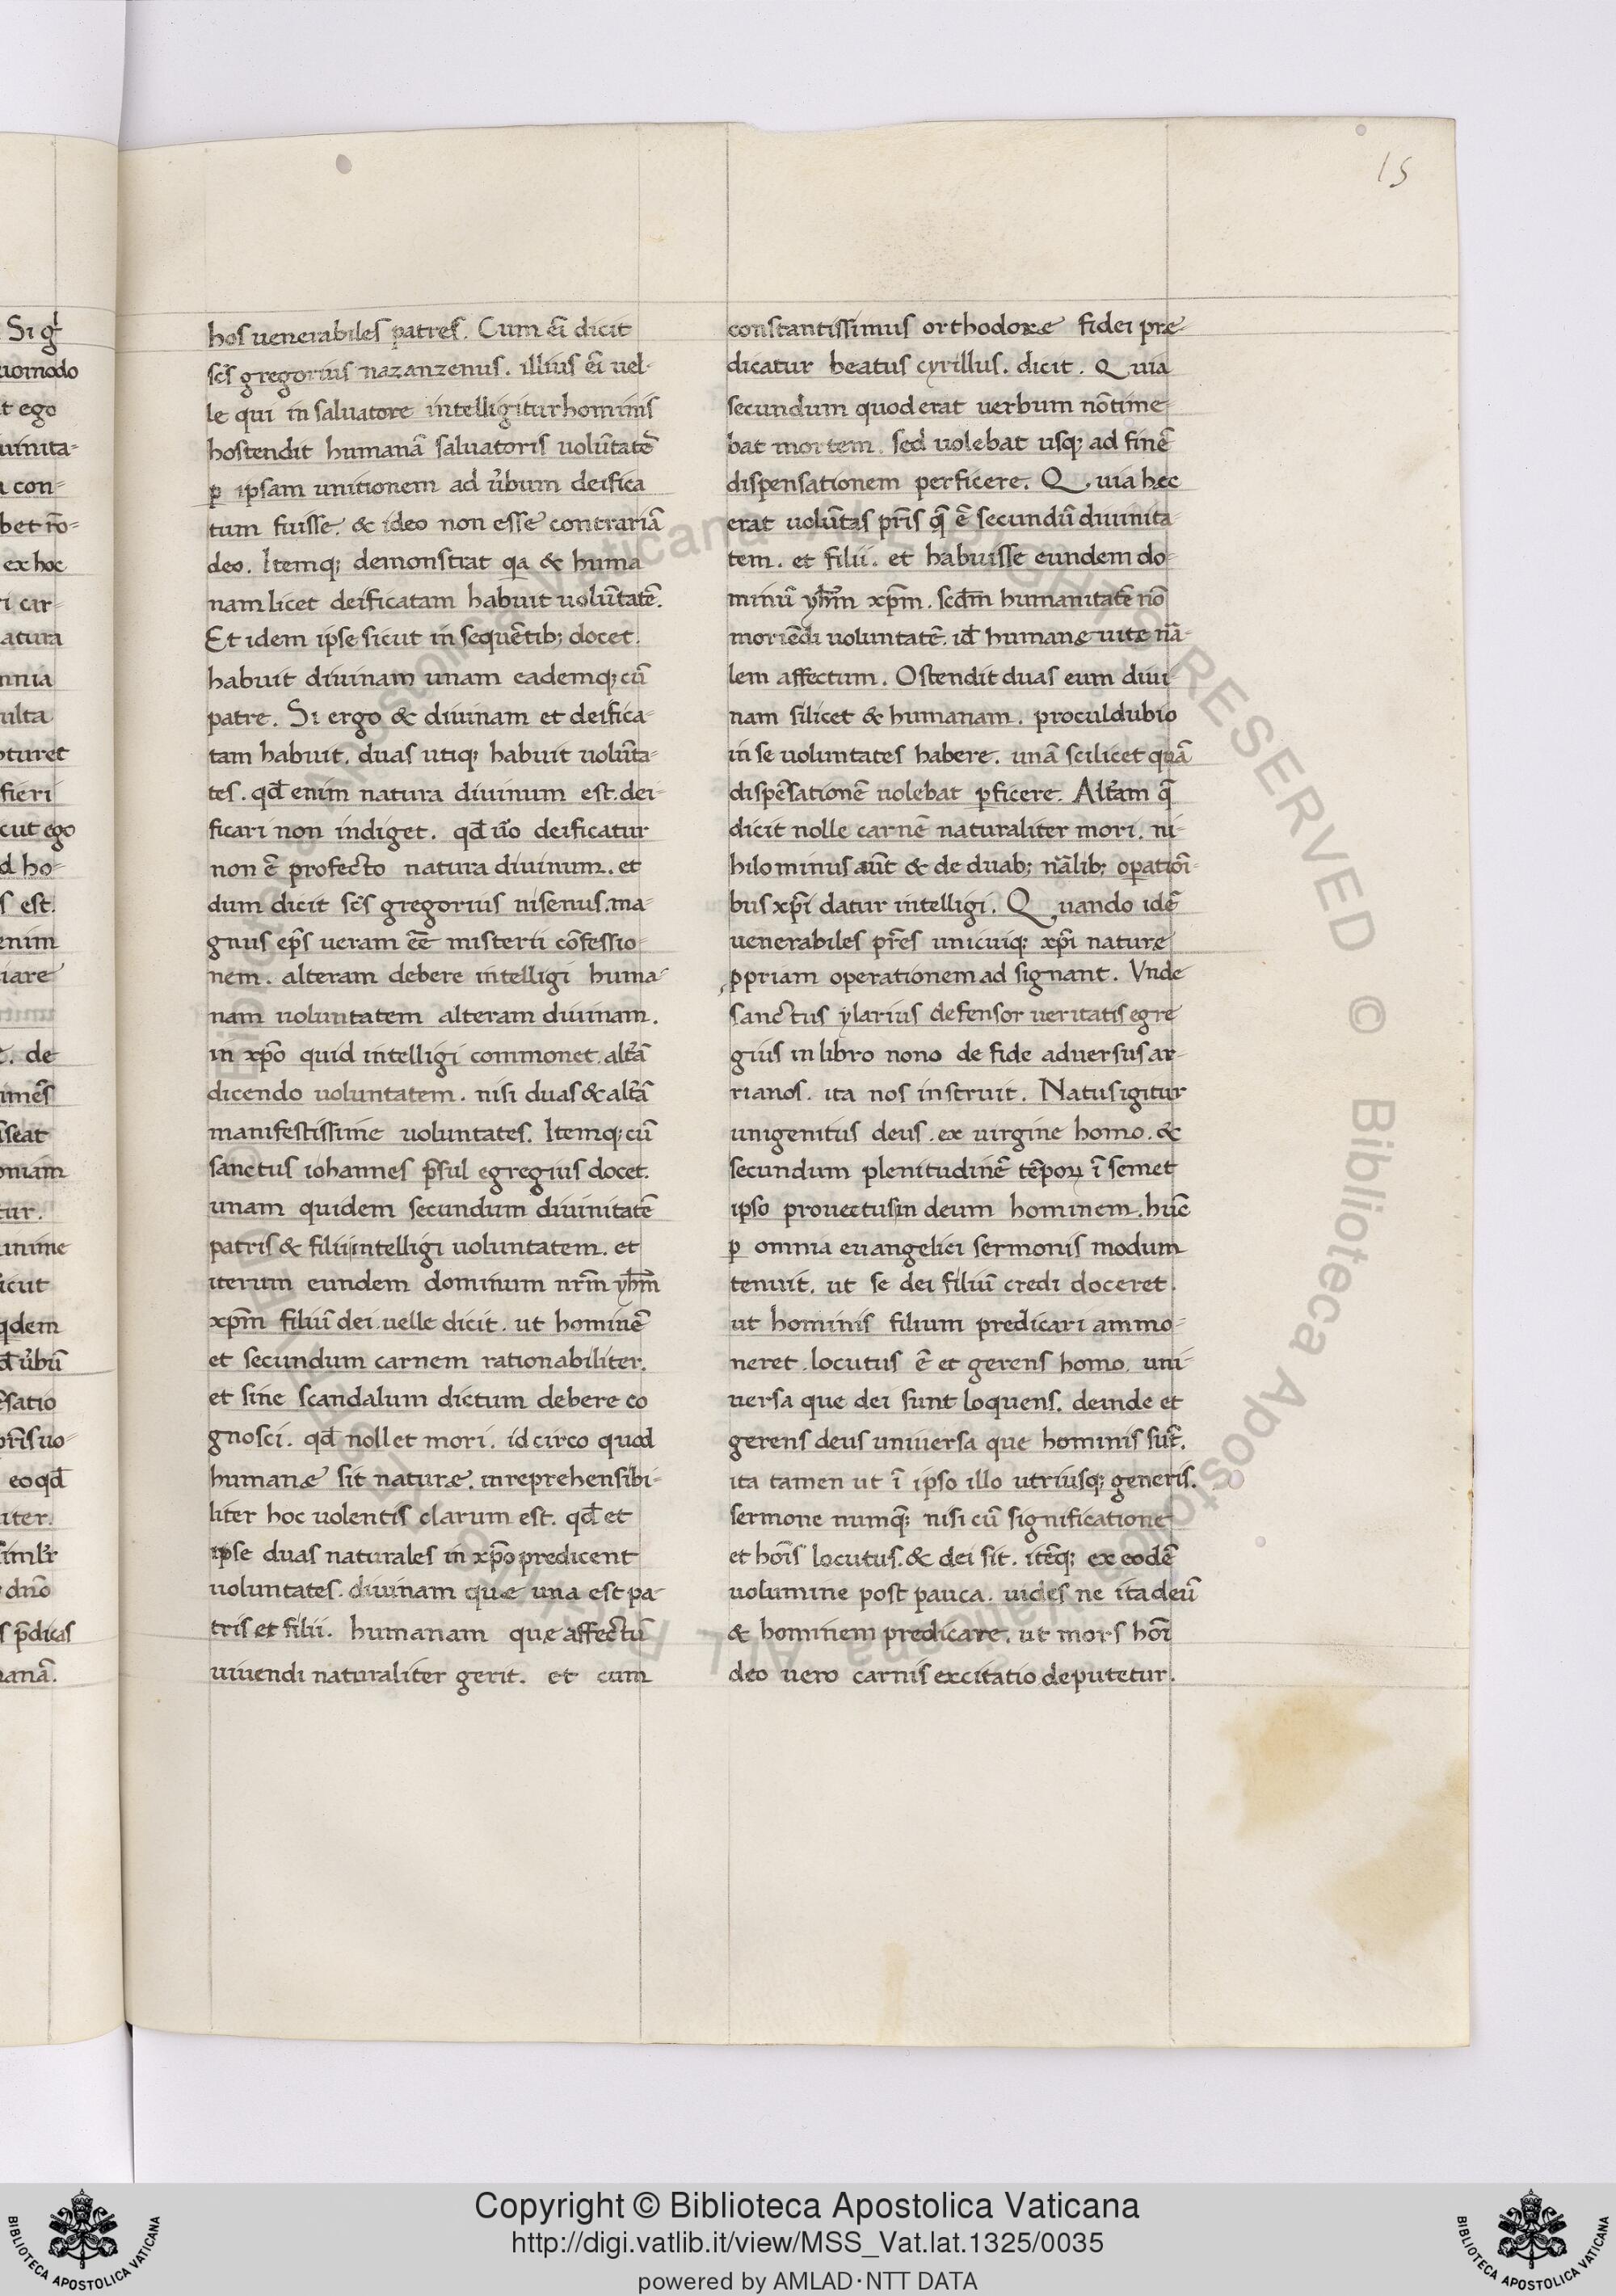 15
hos uenerabiles patres. Cum eī dicit
sc̄s gregorius nazanzenus. illius eī uel-
le qui in saluatore intelligitur hominis
hostendit humanā saluatoris uolūtatē
ꝑ ipsam unitionem ad u̓bum deifica
tum fuisse. & ideo non esse contrariā
deo. Itemq; demonstrat qa & huma
nam licet deificatam habuit uolūtatē.
Et idem ipse sicut in sequētib; docet.
habuit diuinam unam eademq; cū
patre. Si ergo & diuinam et deifica-
tam habuit. duas utiq; habuit uolūta-
tes. qđ enim natura diuinum est. dei-
ficari non indiget. qđ u̓o deificatur
non ē profecto natura diuinum. et
dum dicit sc̄s gregorius nisenus. ma-
gnus ep̄s ueram eē̄ misterii cōfessio-
nem. alteram debere intelligi huma-
nam uoluntatem alteram diuinam.
in xp̄o quid intelligi commonet. alt̓ā
dicendo uoluntatem. nisi duas & alt̓ā
manifestissime uoluntates. Itemq; cū
sanctus iohannes p̄sul egregius docet.
unam quidem secundum diuinitatē
patris & filii intelligi uoluntatem. et
iterum eundem dominum nr̄m yh̄m
xp̄m filiū dei. uelle dicit. ut hominē
et secundum carnem rationabiliter.
et sine scandalum dictum debere co
gnosci. qđ nollet mori. id circo quod
humanæ sit naturæ. inreprehensibi-
liter hoc uolentis clarum est. qđ et
ipse duas naturales in xp̄o predicent
uoluntates. diuinam quæ una est pa-
tris et filii. humanam quæ affectū
uiuendi naturaliter gerit. et cum
constantissimus orthodoxe fidei pre-
dicatur beatus cyrillus. dicit. Quia
secundum quod erat uerbum nō time-
bat mortem. sed uolebat usq; ad finē
dispensationem perficere. Quia hec
erat uolūtas pr̄is q̄ ē secundū diuinita-
tem. et filii. et habuisse eundem do-
minū yh̄m xp̄m. scd̄m humanitatē nō
moriēdi uoluntatē. id̄ humane uite nā-
lem affectum. Ostendit duas eum diui-
nam silicet & humanam. proculdubio
in se uoluntates habere. unā scilicet quā
dispēsationē uolebat ꝑficere. Alt̓am q̄
dicit nolle carnē naturaliter mori. ni-
hilominus aūt & de duab; nālib; oꝑatiōi-
bus xp̄i datur intelligi. Quando idē
uenerabiles pr̄es unicuiq; xp̄i naturæ
ꝓpriam operationem ad signant. Vnde
sanctus ylarius defensor ueritatis egre
gius in libro nono de fide aduersus ar-
rianos. ita nos instruit. Natus igitur
unigenitus deus. ex uirgine homo. &
secundum plenitudinē tēpoꝝ ī semet
ipso prouectus in deum hominem. hūc
ꝑ omnia euangelici sermonis modum
tenuit. ut se dei filiū credi doceret.
ut hominis filium predicari ammo-
neret. locutus ē et gerens homo. uni-
uersa que dei sunt loquens. deinde et
gerens deus uniuersa que hominis sūt.
ita tamen ut ī ipso illo utriusq; generis.
sermone numq̄; nisi cū significatione
et hoīs locutus. & dei sit. itēq; ex eodē
uolumine post pauca. uides ne ita deū
& hominem predicare. ut mors hoī
deo uero carnis excitatio deputetur.
Copyright © Biblioteca Apostolica Vaticana
http://digi.vatlib.it/view/MSS_Vat.lat.1325/0035
powered by AMLAD·NTT DATA